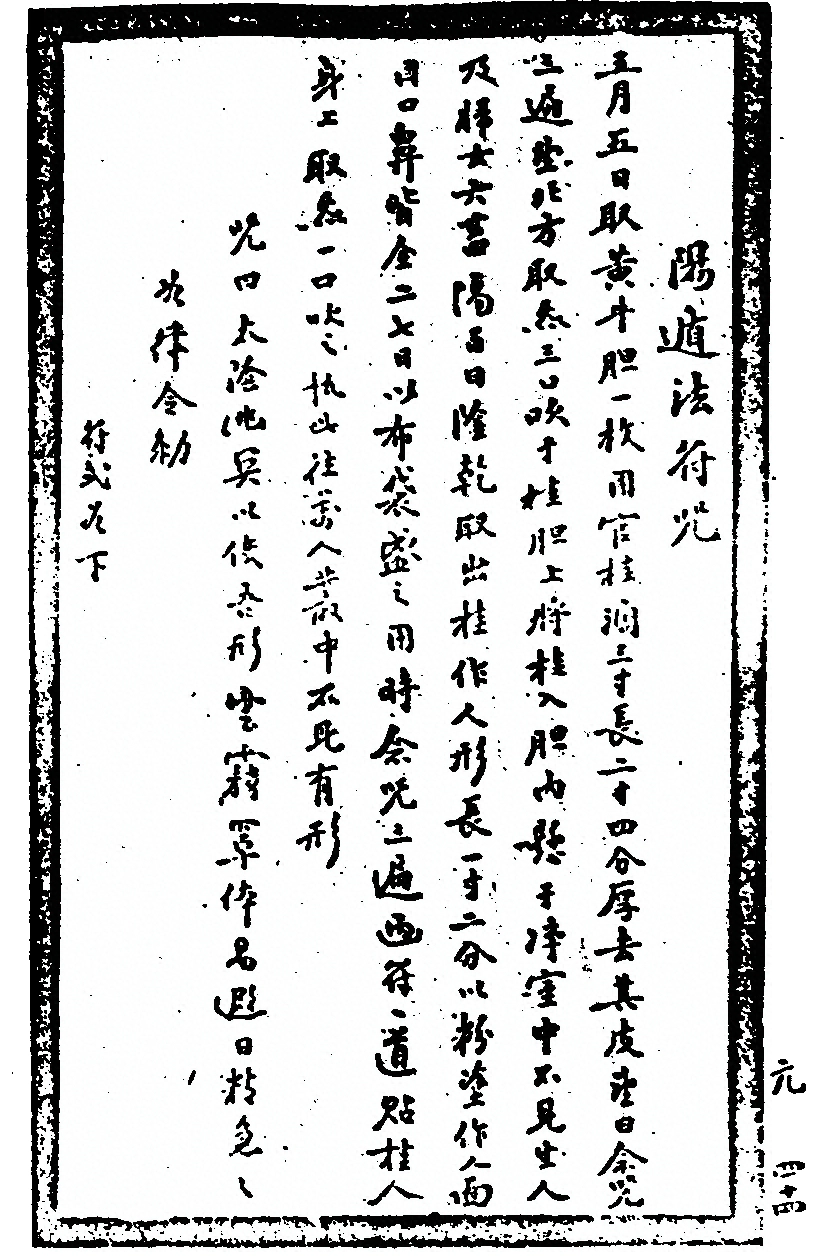 陽遁法符咒
五月五日取黃牛胆一枚用官桂濶三寸長二寸四分厚去其皮望日念咒
三遍望北方取炁三口吹于桂胆上將桂入胆內懸于凈室中不見生人
及婦女六畜隔百日陰乾取出桂作人形長一寸二分以粉塗作人面
目口鼻皆全二七日以布袋盛之用時念咒三遍画符一道貼桂人
身上取炁一口吹之執此往萬人叢中不見有形
咒曰太陰幽冥以使吾形雲霧罩体易避日精急々
如律令勅
符式如下
元 四十四